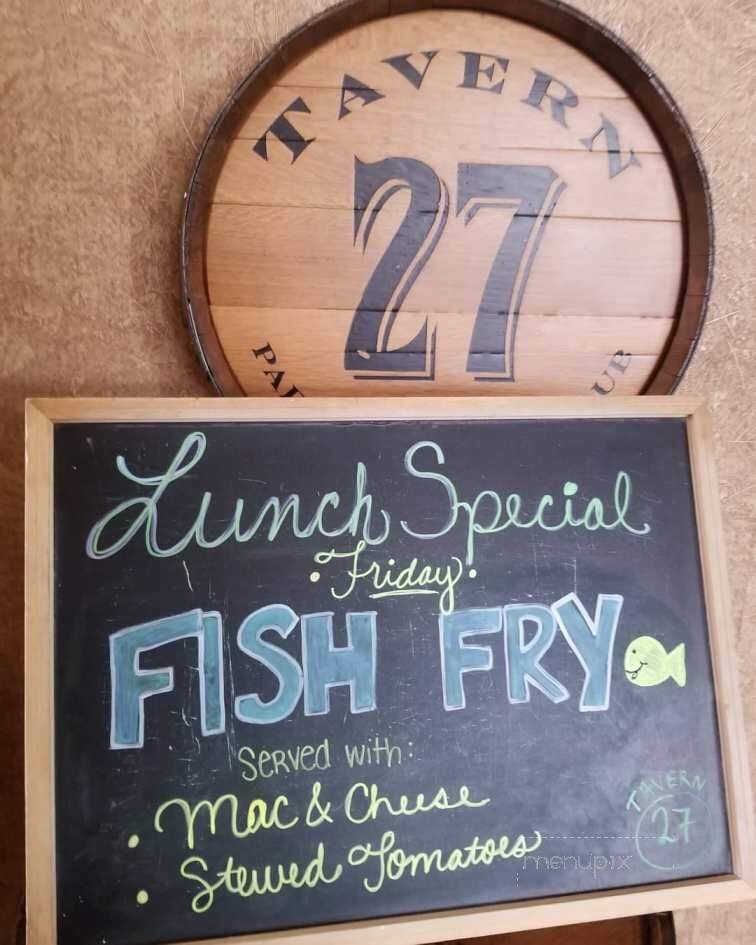 TAVERN
27
Lunch Special
• Friday •
FISH FRY
SERVED WITH:
• Mac & Cheese
• Stewed Tomatoes
TAVERN
27
menupix